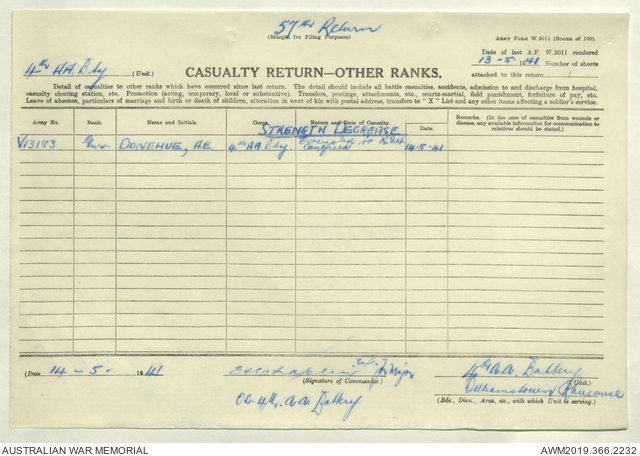 57th Return
(Margin for Filing Purposes)
ARMY FORM W.3011 (BOOKS OF 100).
Date of last A.F. W.3011 rendered
13-5-1941 Number of sheets
attached to this return 1
4th AA Bty (Unit.)
CASUALTY RETURN—OTHER RANKS.
Detail of casualties to other ranks which have occurred since last return. The detail should include all battle casualties, accidents, admission to and discharge from hospital,
casualty clearing station, etc. Promotion (acting, temporary, local or substantive). Transfers, postings, attachments, etc., courts-martial, field punishment, forfeiture of pay, etc.
Leave of absence, particulars of marriage and birth or death of children, alteration in next of kin with postal address, transfers to "X" List and any other items affecting a soldier's service.
Army No. Rank. Name and Initials. Corps. Nature and Date of Casualty. Date. Remarks. (In the case of casualties from wounds or disease, any available information for communication to relatives should be stated.)
STRENGTH DECREASE
V13183 Gnr. DONEHUE, A.E. 4th AA Bty. Evacuated to Caulfield 14.5.41
(Date 14-5-1941 Major 4th A.A. Battery
(Signature of Commander.) (Unit.)
OC 4th A.A. Battery Williamstown Racecourse
(Bde., Divn., Area, etc., with which Unit is serving.)
AUSTRALIAN WAR MEMORIAL AWM2019.366.2232